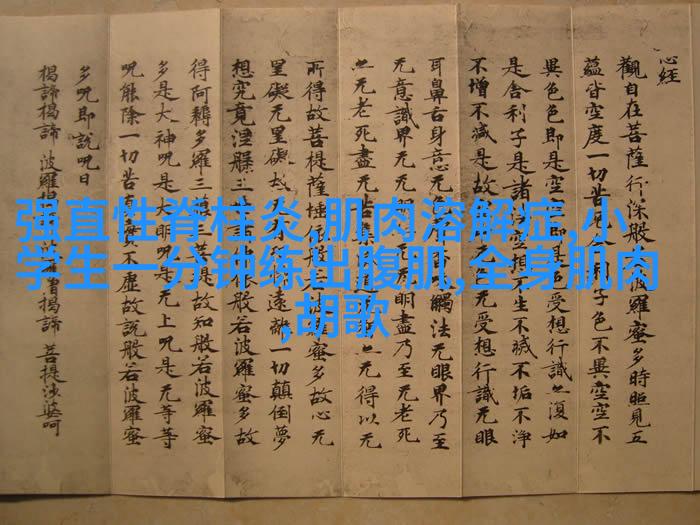 心经
觀自在菩薩行深般波羅蜜多時照見五
蘊皆空度一切苦厄舍利子色不異空空不
異色色即是空空即是受想行識亦復如
是舍利子是諸法空相不生不滅不垢不淨
不增不减是故无色无受想行識无眼
耳鼻舌身意无色香觸法无眼界乃至
无意識界无无明盡乃至无老死
亦无老死盡无苦集亦无得以无
所得故菩提薩埵依般若波羅蜜多故心无
罣礙无罣礙故遠離一切顛倒夢
想究竟涅槃三世諸依般若波羅蜜多故
得阿耨多羅三藐三菩提故知般若波羅蜜
多是大神呪是大明呪是无上呪是无等等
呪能除一切苦真實不虛故說般若波羅蜜
多呪即說呪曰
揭諦揭諦 波羅揭諦 波羅僧揭諦 菩提娑婆呵
强直性脊柱炎,肌肉溶解症,小
学生一分钟练出腹肌,全身肌肉
,胡歌